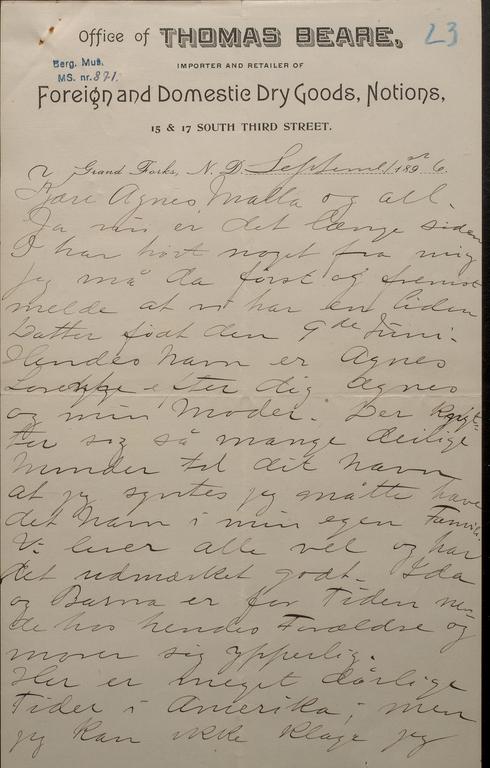 Office of THOMAS BEARE,
23
Berg. Mus.
MS. nr. 871.
IMPORTER AND RETAILER OF
Foreign and Domestic Dry Goods, Notions,
15 & 17 SOUTH THIRD STREET.
Grand Forks, N. D. September 1st 1896.
Kjære Agnes Malla og all.
Ja nu er det længe siden
I har hørt noget fra mig
jeg må da først og fremst
melde at vi har en liden
Datter født den 9de Juni.
Hendes Navn er Agnes
efter dig Agnes
og min Moder. Der knyt-
ter sig så mange deilige
Minder til dit Navn
at jeg syntes jeg måtte have
det Navn i min egen Familie
Vi lever alle vel og har
det udmærket godt. Ida
og Barna er for Tiden
hos hendes Forældre og
morer sig ypperlig.
Her er meget dårlige
Tider i Amerika; men
jeg kan ikke klage jeg